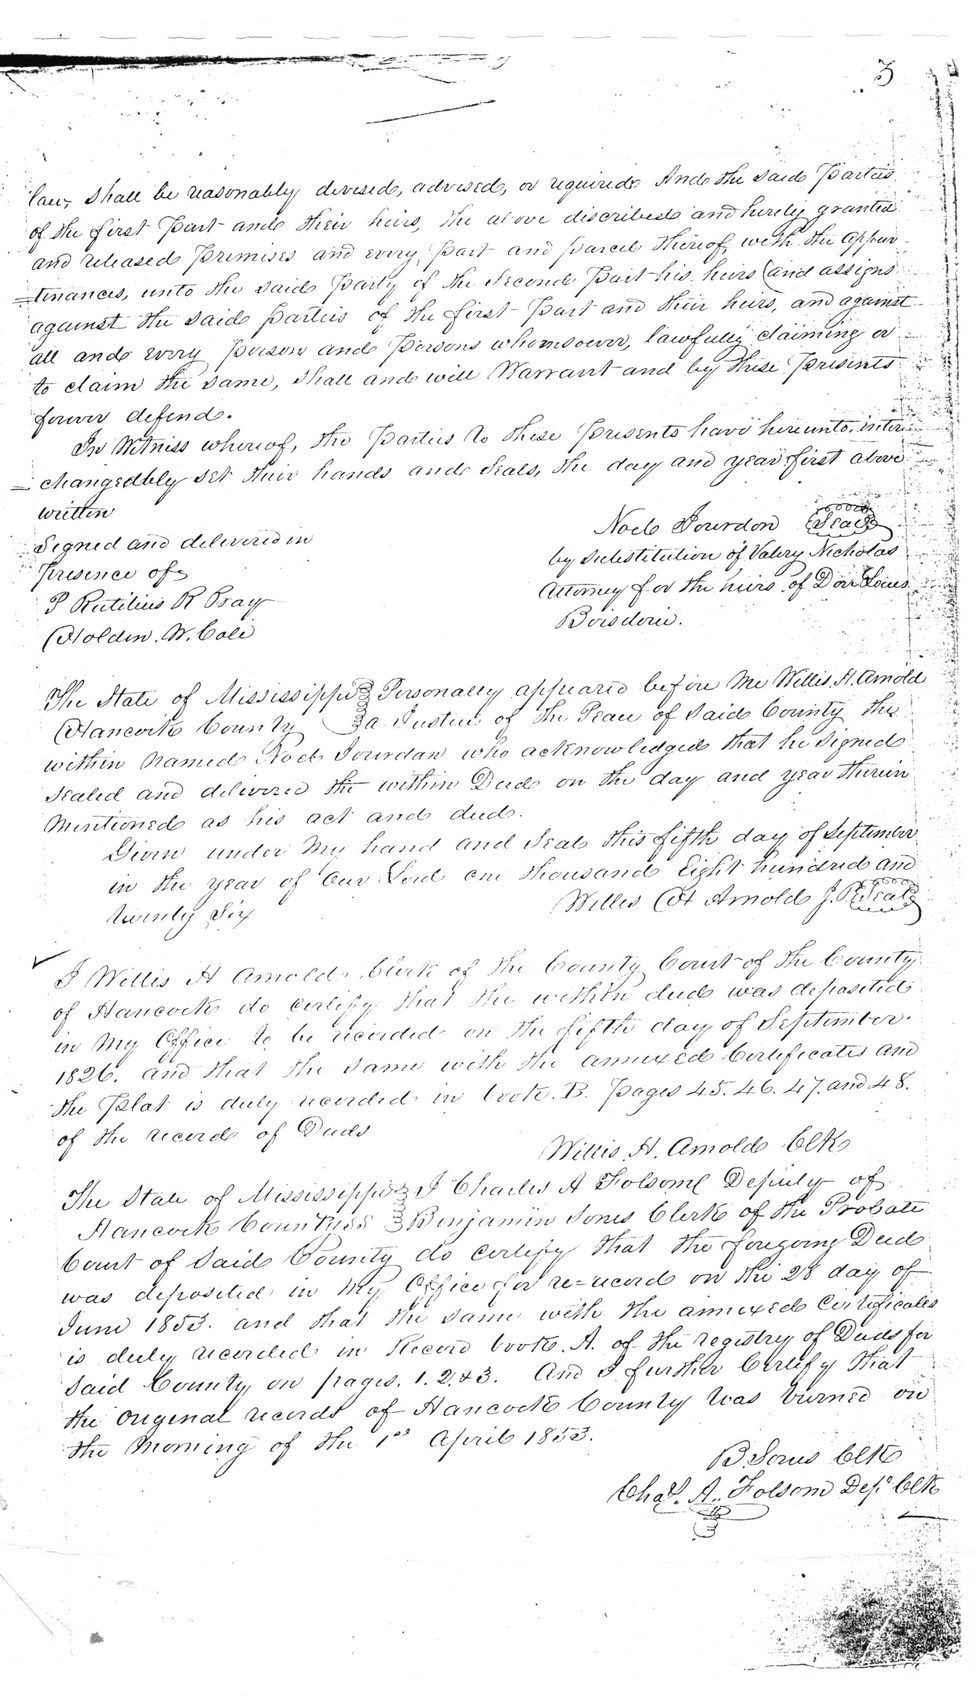 3
law, shall be reasonably devised, advised, or required. And the said Parties
of the first Part and their heirs, the above discribed and hereby granted
and released Premises and every Part and parcel thereof, with the appur
=tinances, unto the said Party of the Second Part his heirs and assigns
against the said Parties of the first Part and their heirs, and against
all and every Person and Persons whomsoever, lawfully claiming or
to claim the same, shall and will Warrant and by these Presents
forever defend.
In Witness whereof, the Parties to these Presents have hereunto inter
=changedbly set their hands and Seals, the day and year first above
written
Signed and delivered in
Presence of
P Rutilius R Pray
Holden. W. Cole
Noel Jourdon Seal
by substitution of Valery Nicholas
Attorney for the heirs of Don Louis
Boisdorie.
The State of Mississippi Personally appeared before Me Willis. H. Arnold
Hancock County a Justice of the Peace of Said County the
within named Noel Jourdan who acknowledged that he signed
sealed and delivered the within Deed on the day and year therein
Mentioned as his act and deed.
Given under My hand and Seal this fifth day of September
in the year of Our Lord one thousand Eight hundred and
twenty Six
Willis H Arnold J. P. Seal
I Willis H Arnold Clerk of the County Court of the County
of Hancock do certify that the within deed was deposited
in My Office to be recorded on the fifth day of September
1826. and that the same with the annexed Certificates and
the Plat is duly recorded in book. B. Pages 45. 46. 47. and 48.
of the records of Deeds
Willis. H. Arnold Clk
The State of Mississippi I Charles A Folsom Deputy of
Hancock County SS Benjamin Sones Clerk of the Probate
Court of Said County do certify that the foregoing Deed
was deposited in My Office for re=record on the 28 day of
June 1853. and that the same with the annexed Certificates
is duly recorded in Record book. A. of the registry of Deeds for
Said County on pages. 1. 2. & 3. And I further Certify that
the original records of Hancock County was burned on
the Morning of the 1st April 1853.
B. Sones Clk
Chas. A. Folsom Dep. Clk